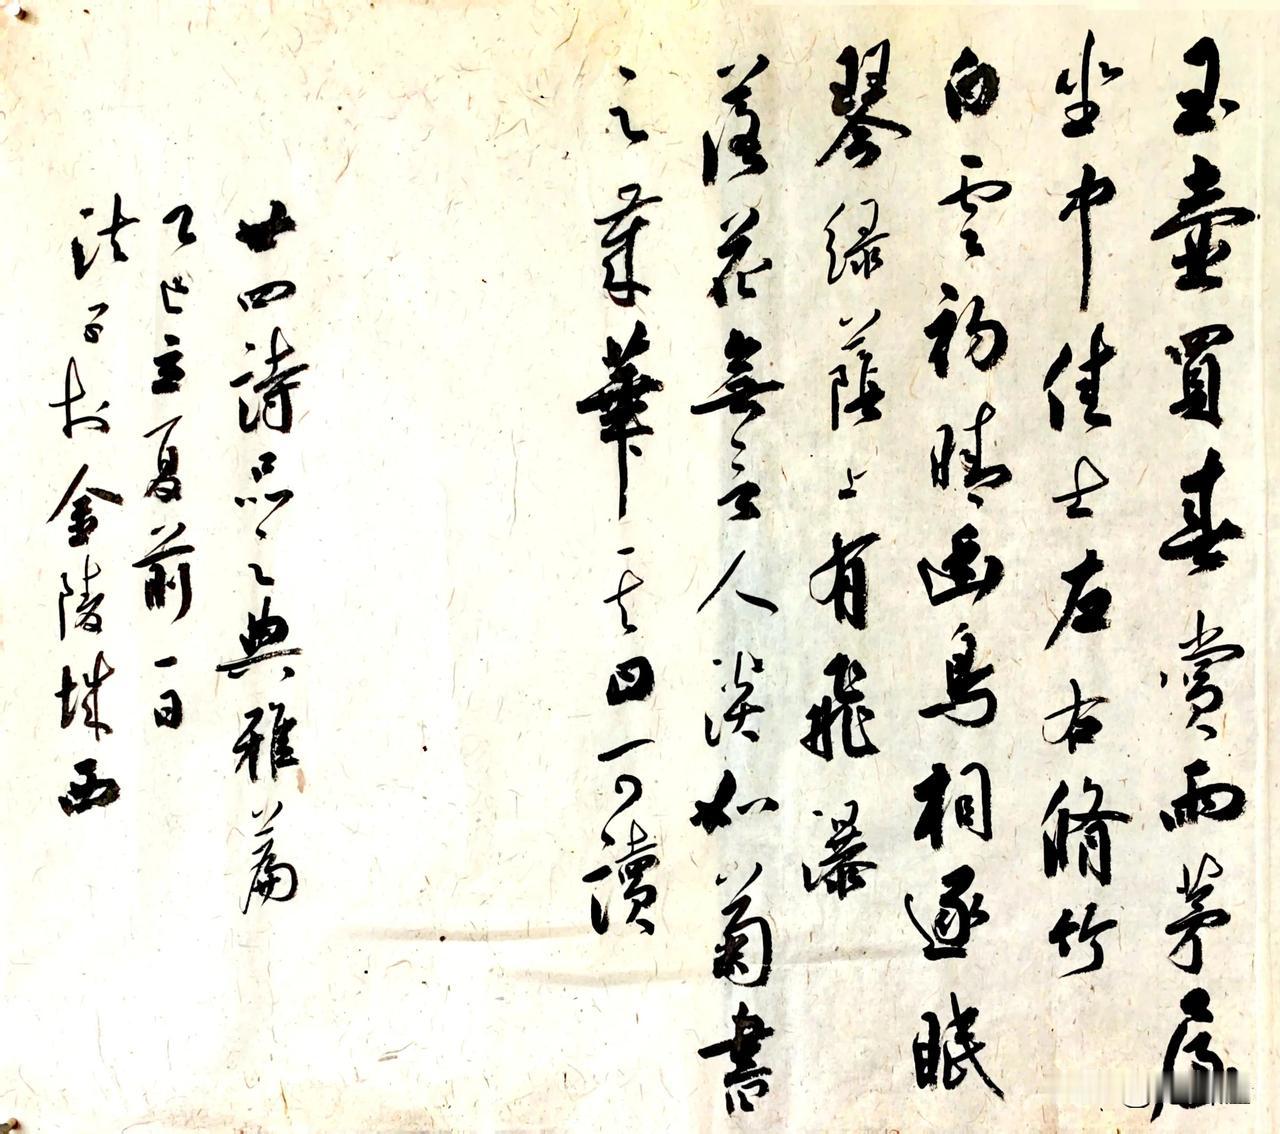 玉壺買春賞雨茅屋
坐中佳士左右脩竹
白雲初晴幽鳥相逐眠
琴綠蔭上有飛瀑
落花無言人淡如菊書
之歲華其曰可讀
廿四詩品之典雅篇
乙巳立夏前一日
於金陵城西